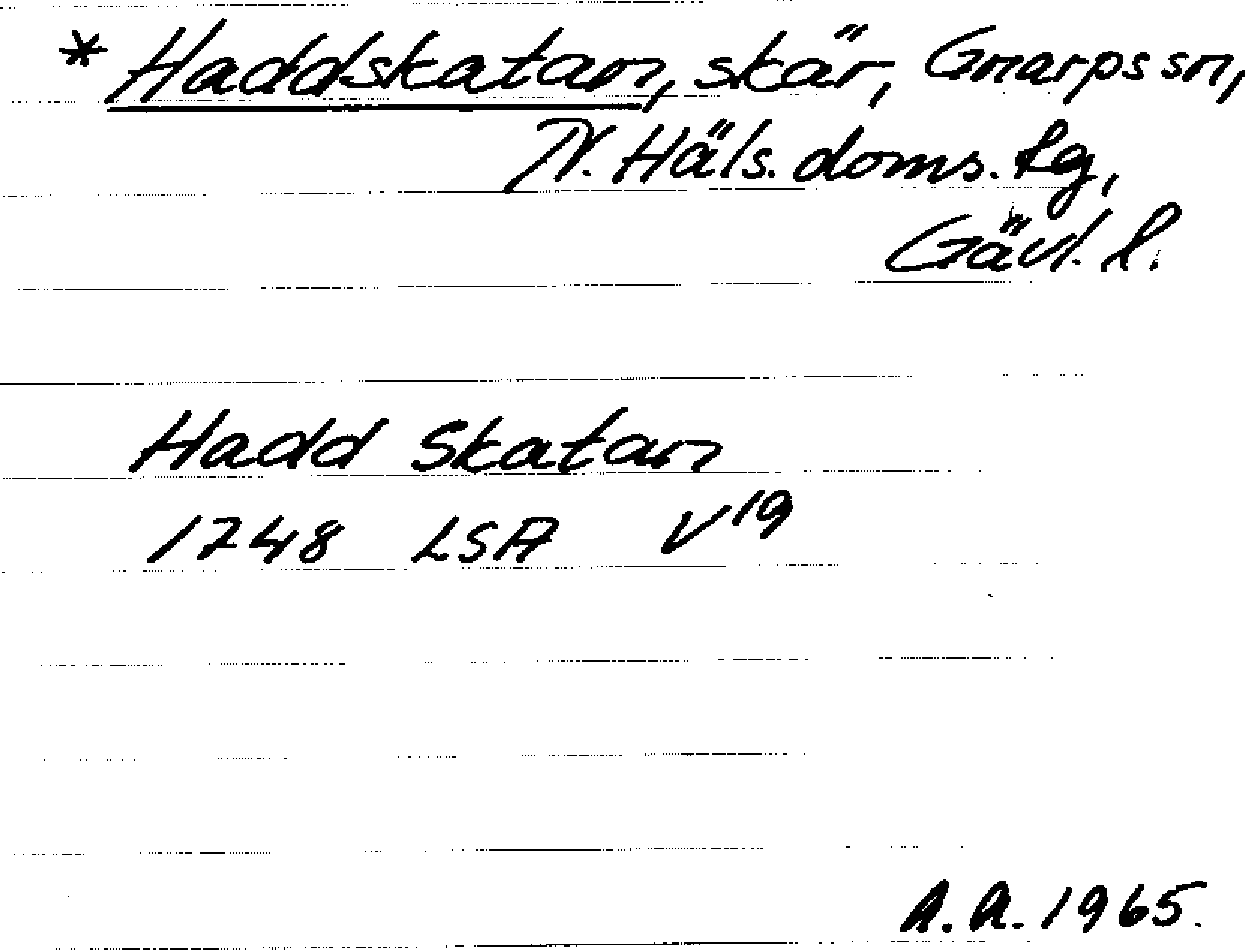 * Haddskatan, skär, Gnarps sn,
N. Häls. doms. lg,
Gävl. l.
Hadd Skatan
1748 LSA V¹⁹
A.A. 1965.